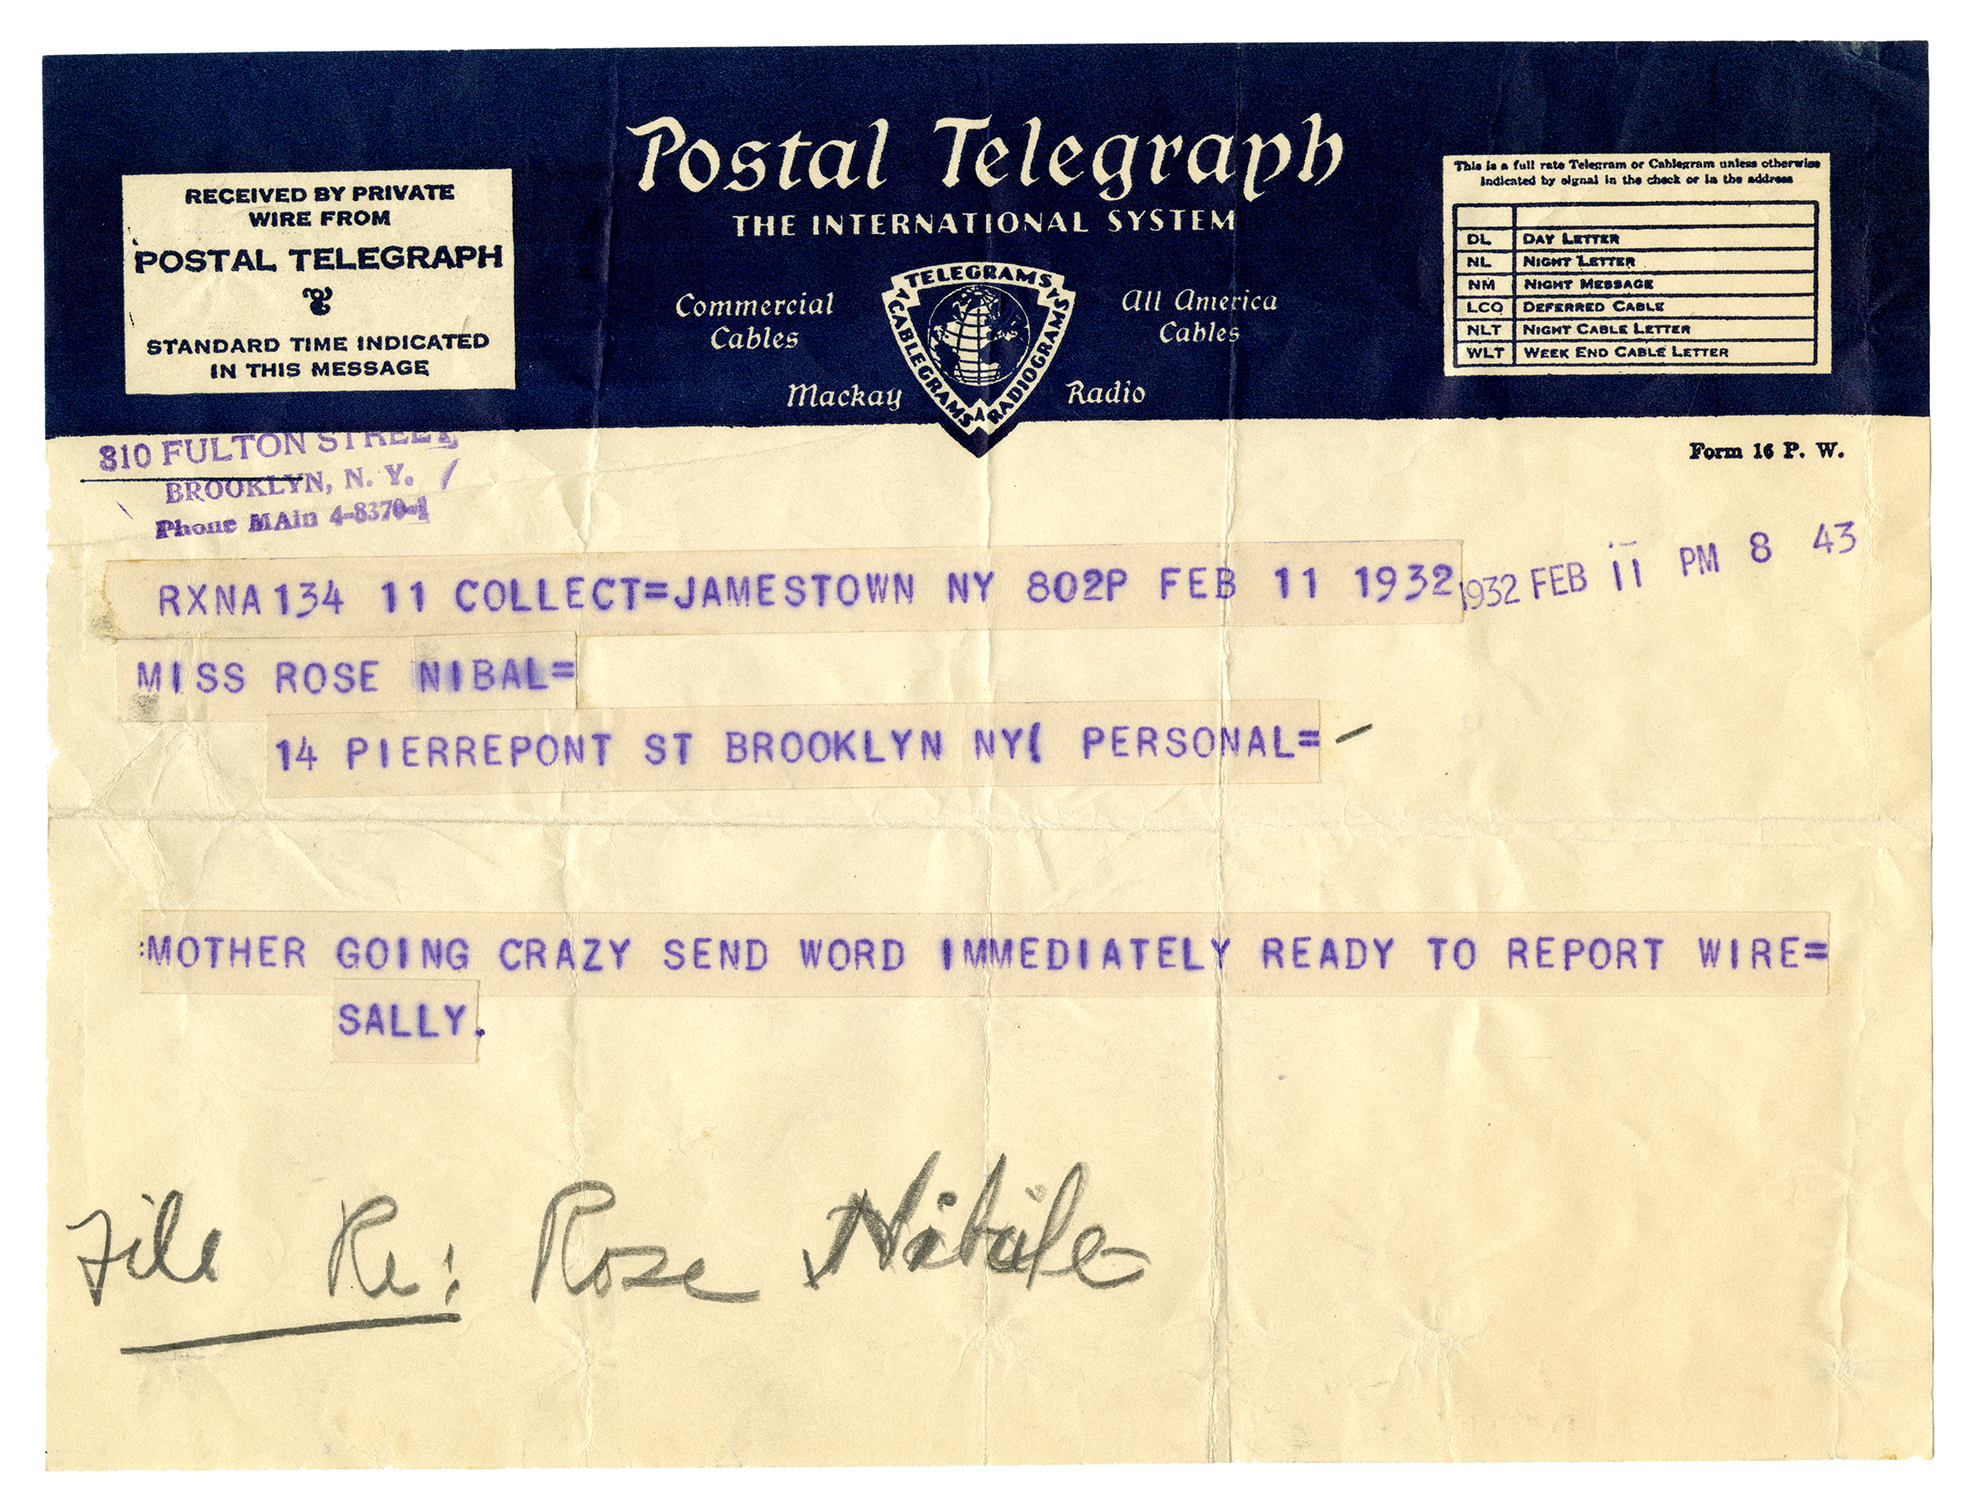 Postal Telegraph
THE INTERNATIONAL SYSTEM
RECEIVED BY PRIVATE
WIRE FROM
POSTAL TELEGRAPH
STANDARD TIME INDICATED
IN THIS MESSAGE
Commercial
Cables
TELEGRAMS
CABLEGRAMS
RADIOGRAMS
All America
Cables
Mackay Radio
This is a full rate Telegram or Cablegram unless otherwise
indicated by signal in the check or in the address
DL DAY LETTER
NL NIGHT LETTER
NM NIGHT MESSAGE
LCO DEFERRED CABLE
NLT NIGHT CABLE LETTER
WLT WEEK END CABLE LETTER
Form 16 P. W.
310 FULTON STREET,
BROOKLYN, N. Y.
Phone MAin 4-8370-1
RXNA134 11 COLLECT=JAMESTOWN NY 802P FEB 11 1932
1932 FEB 11 PM 8 43
MISS ROSE NIBAL=
14 PIERREPONT ST BROOKLYN NY( PERSONAL=
:MOTHER GOING CRAZY SEND WORD IMMEDIATELY READY TO REPORT WIRE=
SALLY.
File Re: Rose